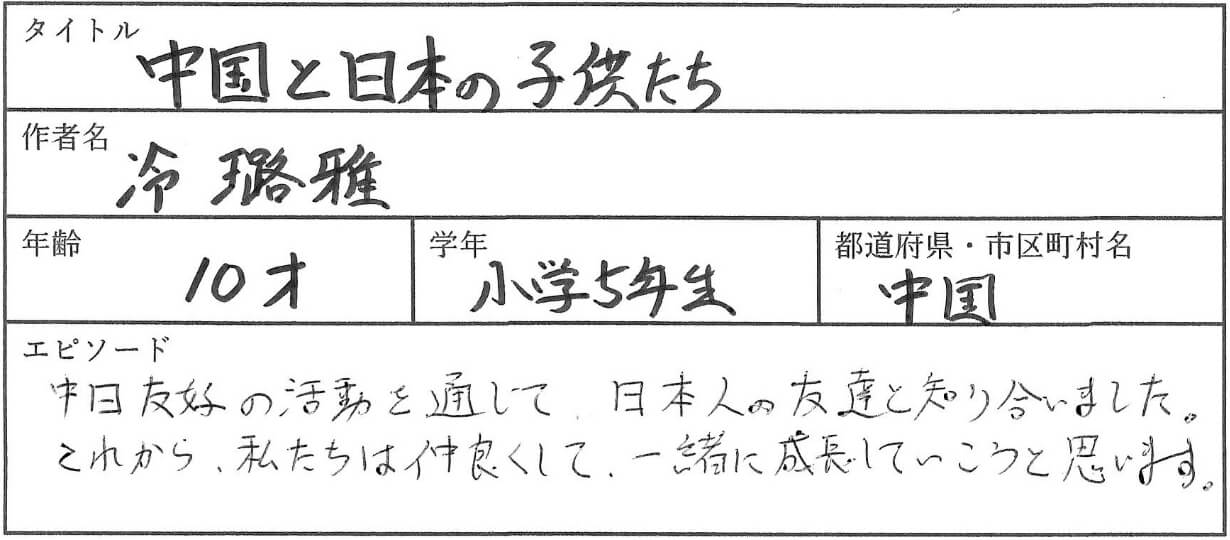 タイトル
中国と日本の子供たち
作者名
冷 璐雅
年齢
10才
学年
小学5年生
都道府県・市区町村名
中国
エピソード
中日友好の活動を通じて、日本人の友達と知り合いました。
これから、私たちは仲良くして、一緒に成長していこうと思います。